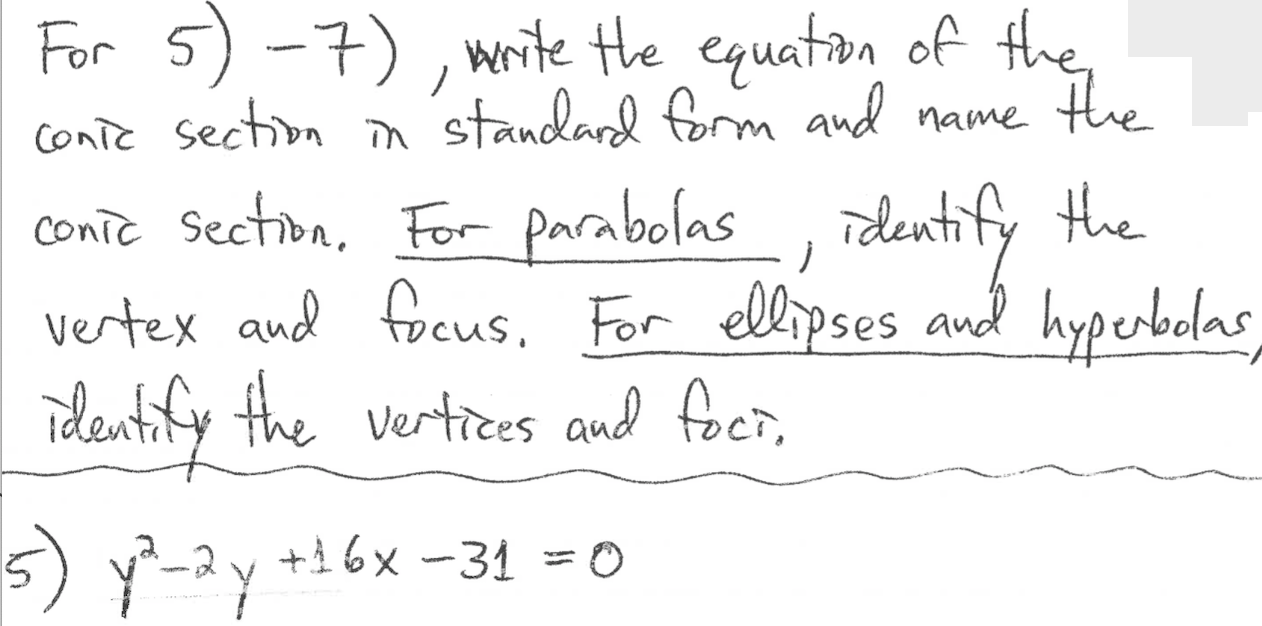 For 5) -7), write the equation of the
conic section in standard form and name the
conic section. For parabolas, identify the
vertex and focus. For ellipses and hyperbolas,
identify the vertices and foci.
5) y²-2y +16x -31 = 0